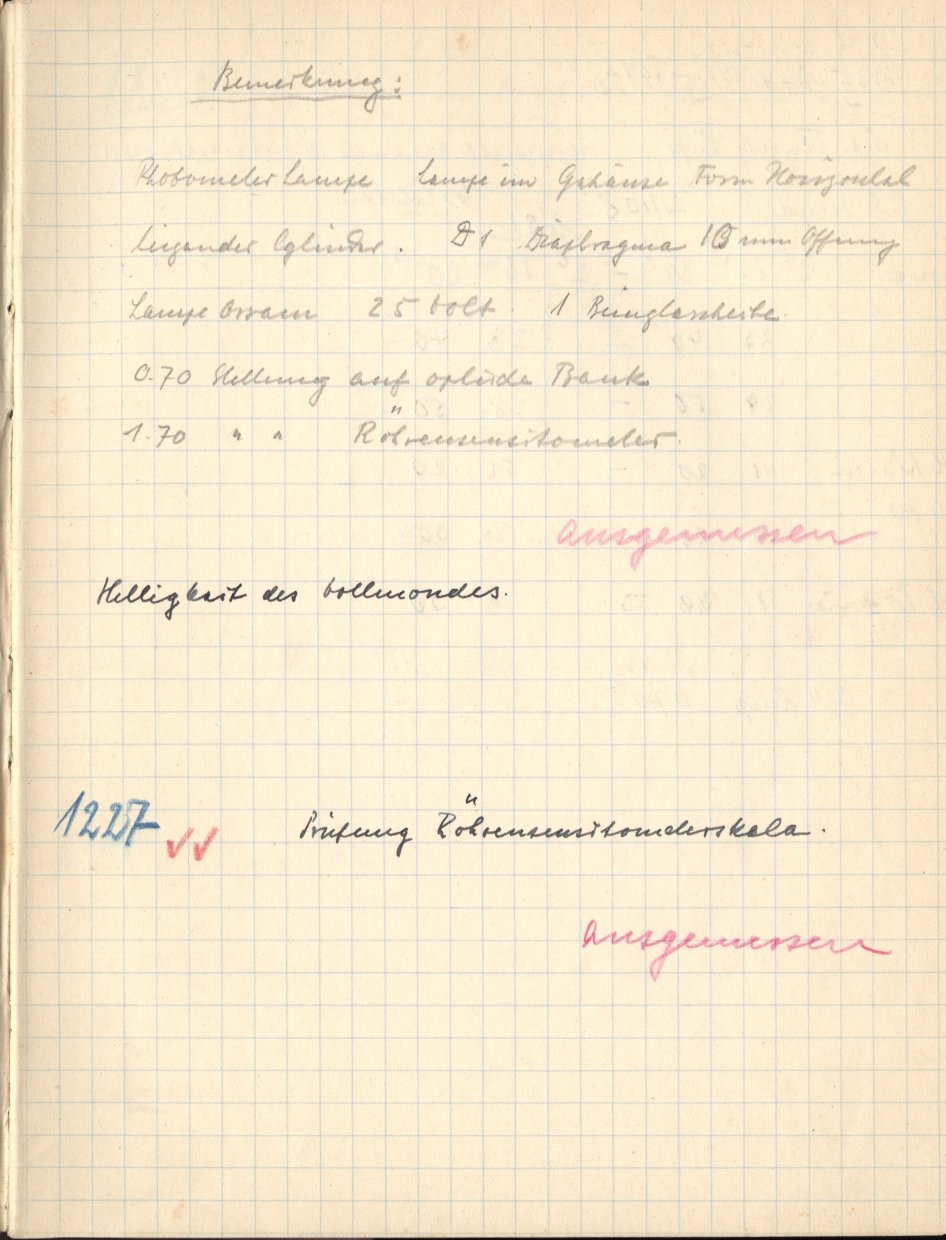 Bemerkung:
Photometer Lampe Lampe im Gehäuse Form Horizontal
liegender Cylinder. D1 Diaphragma 10 mm Öffnung
Lampe Osram 25 Volt. 1 Scheibe
0.70 Stellung auf optische Bank
1.70 " " Röhrensensitometer.
ausgemessen
Helligkeit des Vollmondes.
1227 Prüfung Röhrensensitometerskala.
ausgemessen